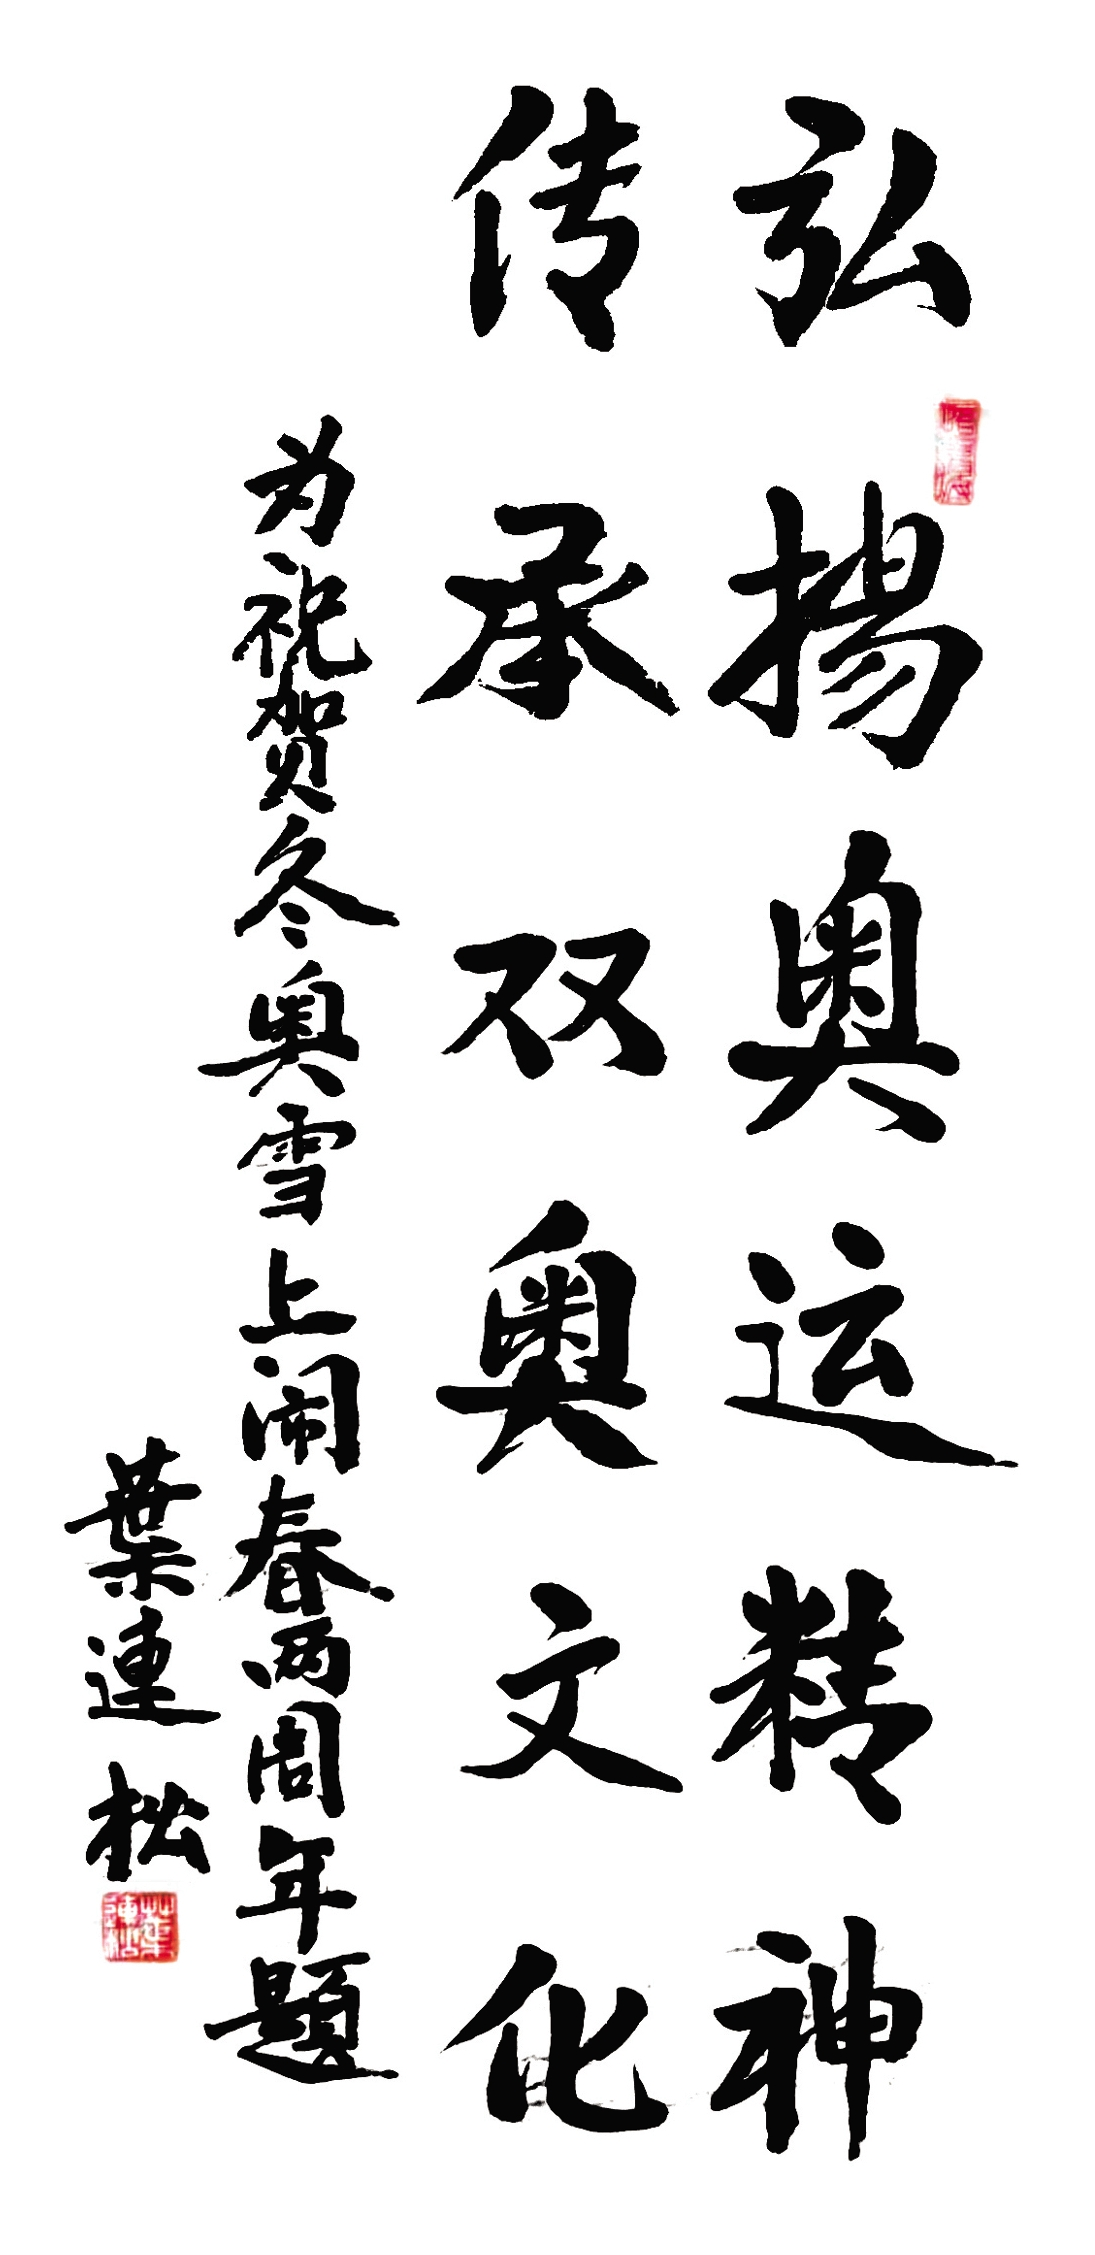 弘揚奥运精神
传承双奥文化
为祝贺冬奥雪上闹春两周年题
葉連松
葉連松